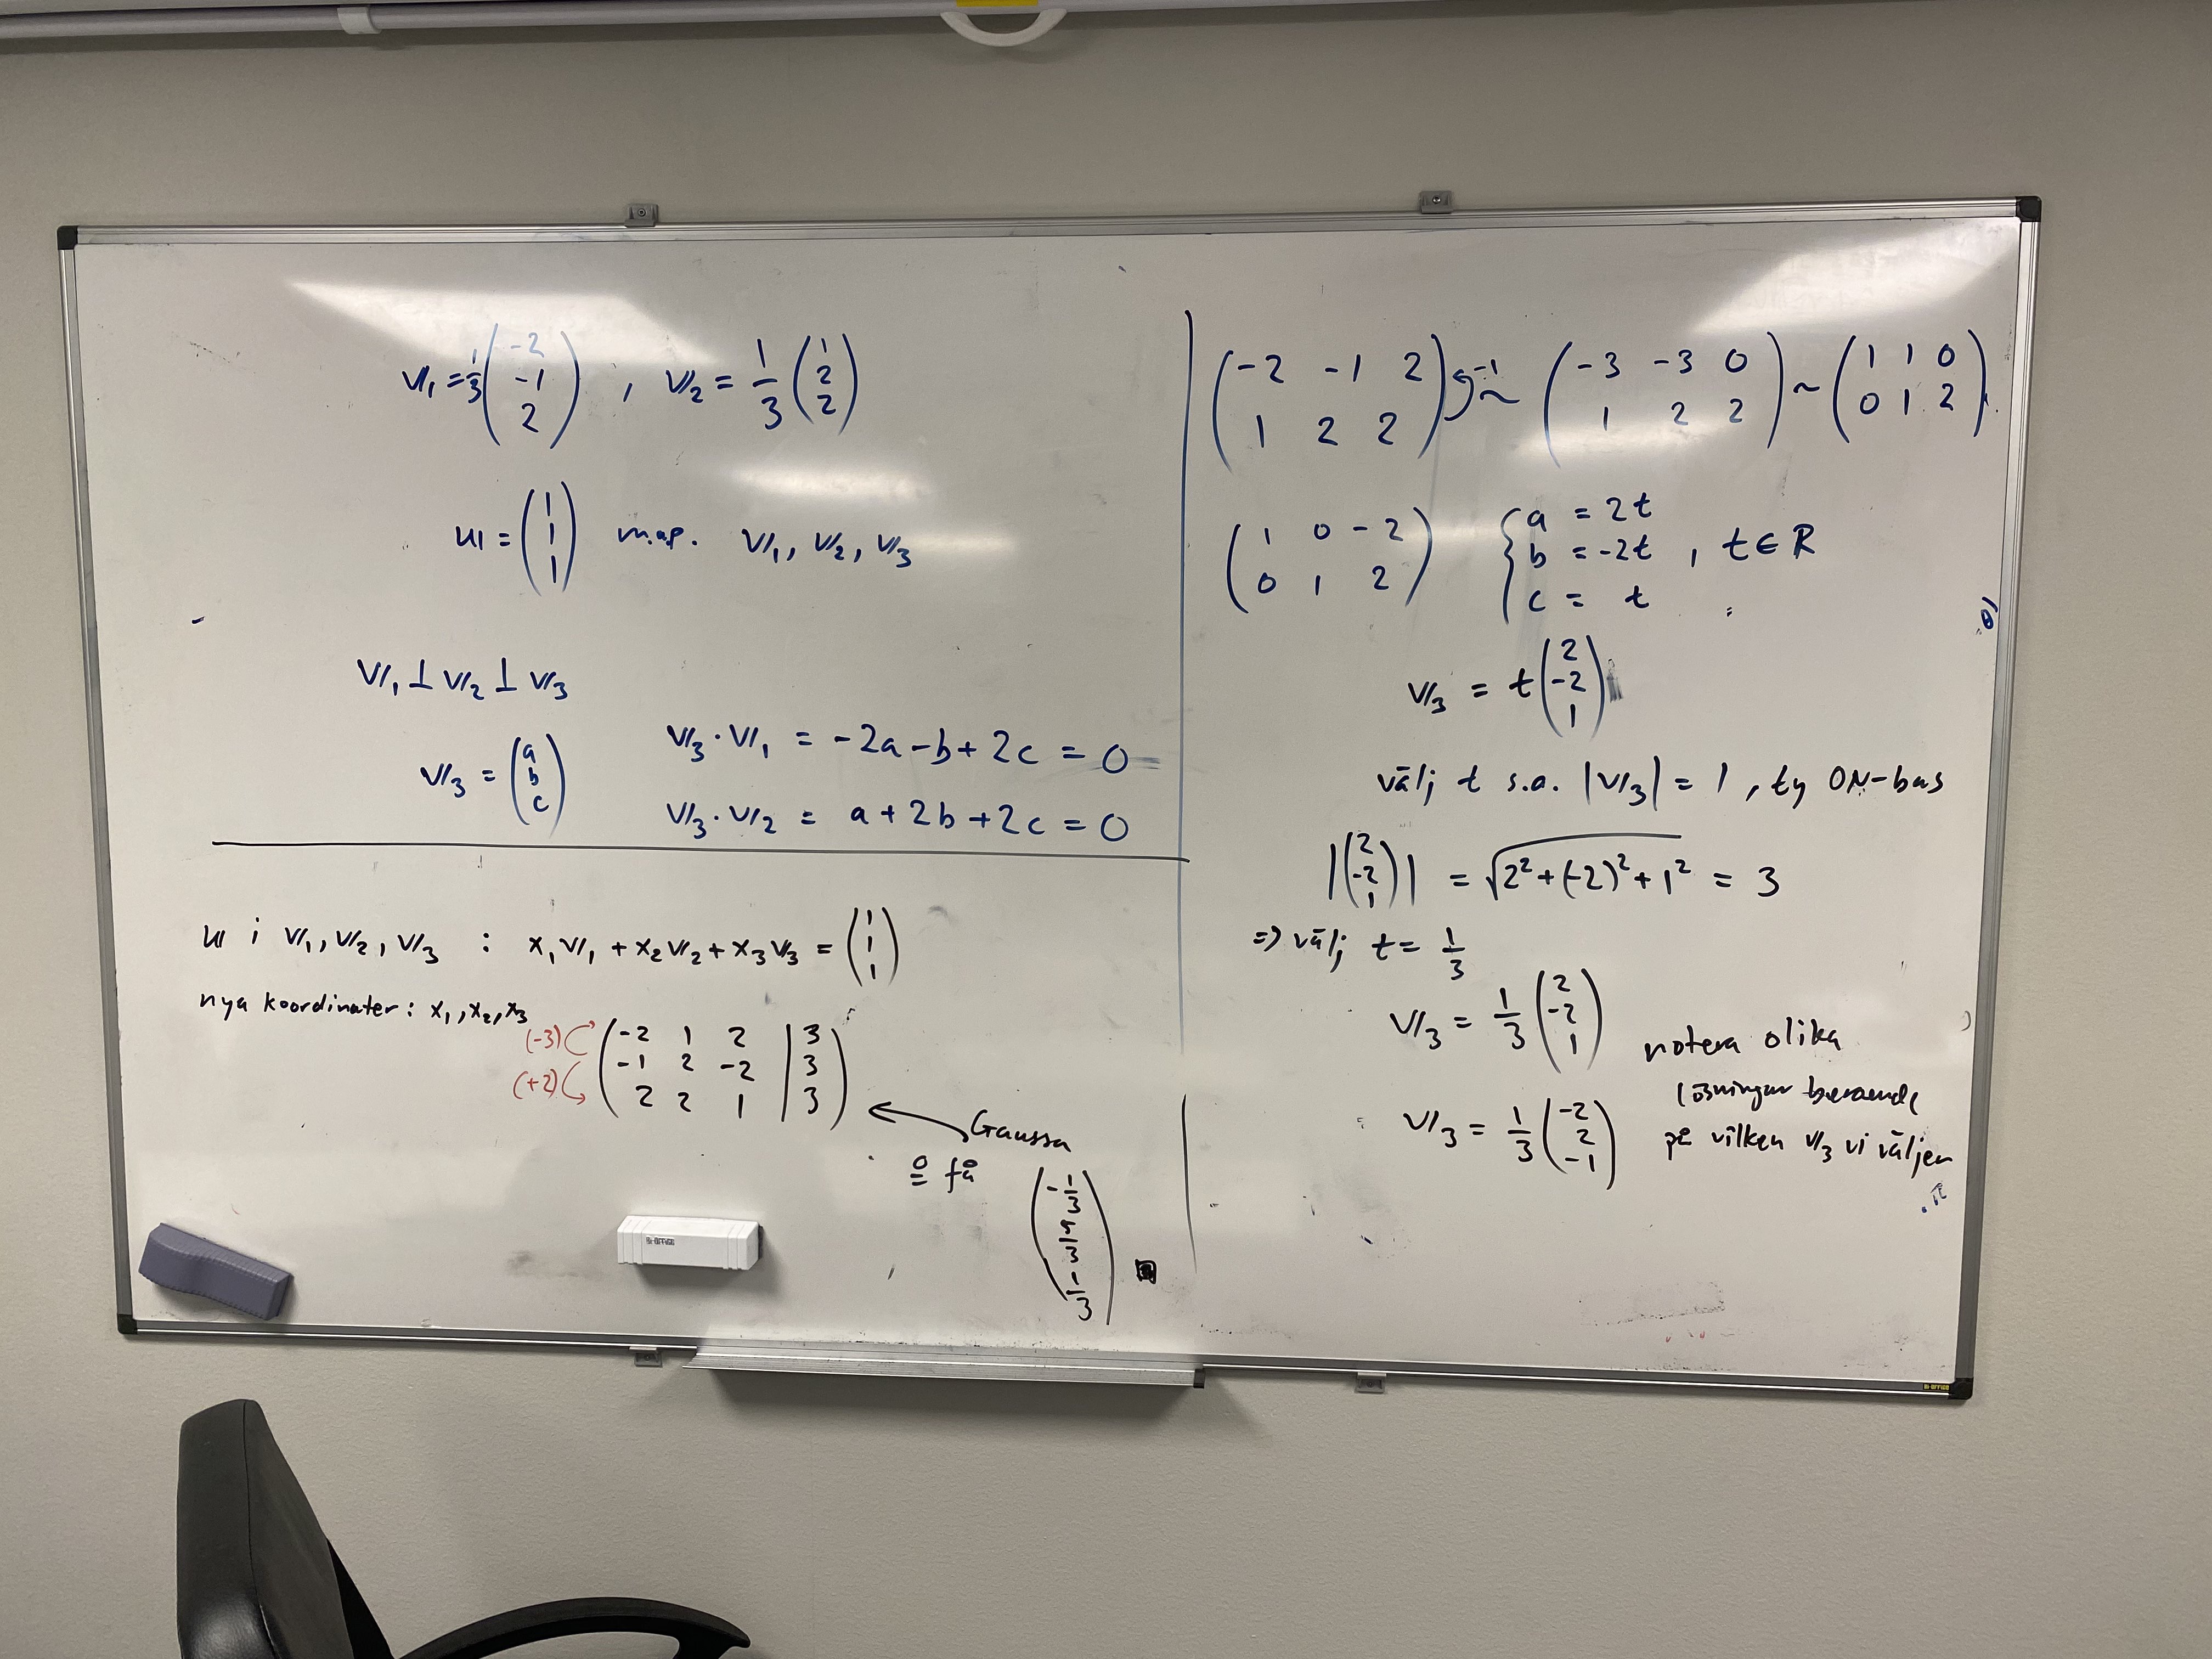 v₁ = 1/3 (-2 -1 2) , v₂ = 1/3 (1 2 2)
u = (1 1 1) m.a.p. v₁, v₂, v₃
v₁ ⊥ v₂ ⊥ v₃
v₃ = (a b c)
v₃ · v₁ = -2a - b + 2c = 0
v₃ · v₂ = a + 2b + 2c = 0
u i v₁, v₂, v₃ : x₁v₁ + x₂v₂ + x₃v₃ = (1 1 1)
nya koordinater: x₁, x₂, x₃
(-3) (-2 1 2 | 3
-1 2 -2 | 3
(+2) 2 2 1 | 3)
Gaussa
o få
(-1/3 5/3 1/3)
(-2 -1 2 -1 ~ (-3 -3 0 ~ (1 1 0
1 2 2) 1 2 2) 0 1 2)
(1 0 -2
0 1 2)
{ a = 2t
b = -2t , t ∈ R
c = t
v₃ = t (2 -2 1)
välj t s.a. |v₃| = 1 , ty ON-bas
|(2 -2 1)| = √2² + (-2)² + 1² = 3
=> välj t = 1/3
v₃ = 1/3 (2 -2 1)
v₃ = 1/3 (-2 2 -1)
notera olika
lösningar beroende
på vilken v₃ vi väljer
Bi-OFFICE
Bi-OFFICE